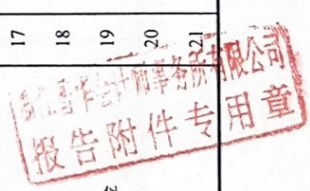 17
18
19
20
21
会计师事务所有限公司
报告附件专用章